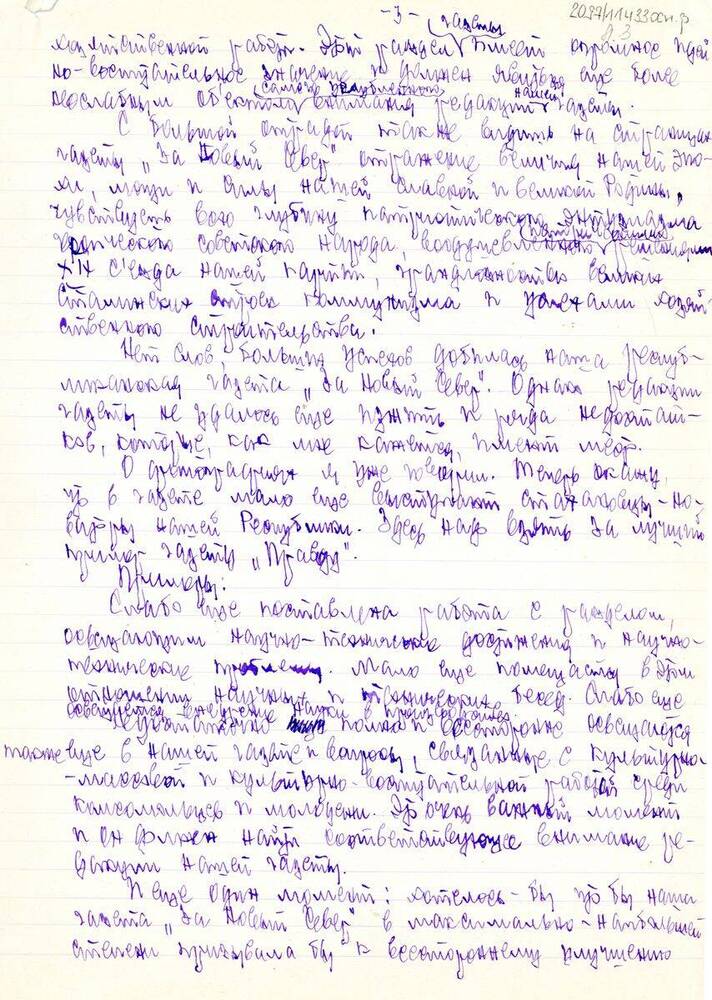 - 3 -
2097/1 1433 осн.ф
л.3
газеты
хозяйственной работы. Этот раздел имеет огромное идей-
но-воспитательное значение и должен явиться еще более
самого
нашей
неослабным объектом внимания редакции газеты.
С большой отрадой также видеть на страницах
газеты „За Новый Север" отражение величия нашей эпо-
хи, мощи и силы нашей славной и великой Родины,
чувствуешь всю глубину патриотического энтузиазма
героического советского народа, решениями
XIX съезда нашей партии, грандиозностью великих
сталинских строек коммунизма и успехами хозяй-
ственного строительства.
Нет слов, больших успехов добилась наша респуб-
ликанская газета „За Новый Север". Однако редакции
газеты не удалось еще изжить и ряда недостат-
ков, которые, как мне кажется, имеют место.
О я уже говорил. Теперь скажу,
что в газете мало еще выступают стахановцы-но-
ваторы нашей Республики. Здесь надо взять за лучший
пример газету „Правду".
Примеры:
Слабо еще поставлена работа с разделом,
освещающим научно-технические достижения и научно-
технические проблемы. Мало еще помещается в этом
отношении научных и технических бесед. Слабо еще
освещается внедрение науки в производство.
Недостаточно полно и всесторонне освещаются
также еще в нашей газете и вопросы, связанные с культурно-
-массовой и культурно-воспитательной работой среди
комсомольцев и молодежи. Это очень важный момент
и он должен найти соответствующее внимание ре-
дакции нашей газеты.
И еще один момент: хотелось-бы что бы наша
газета „За Новый Север" в максимально-наибольшей
степени призывала бы к всестороннему улучшению